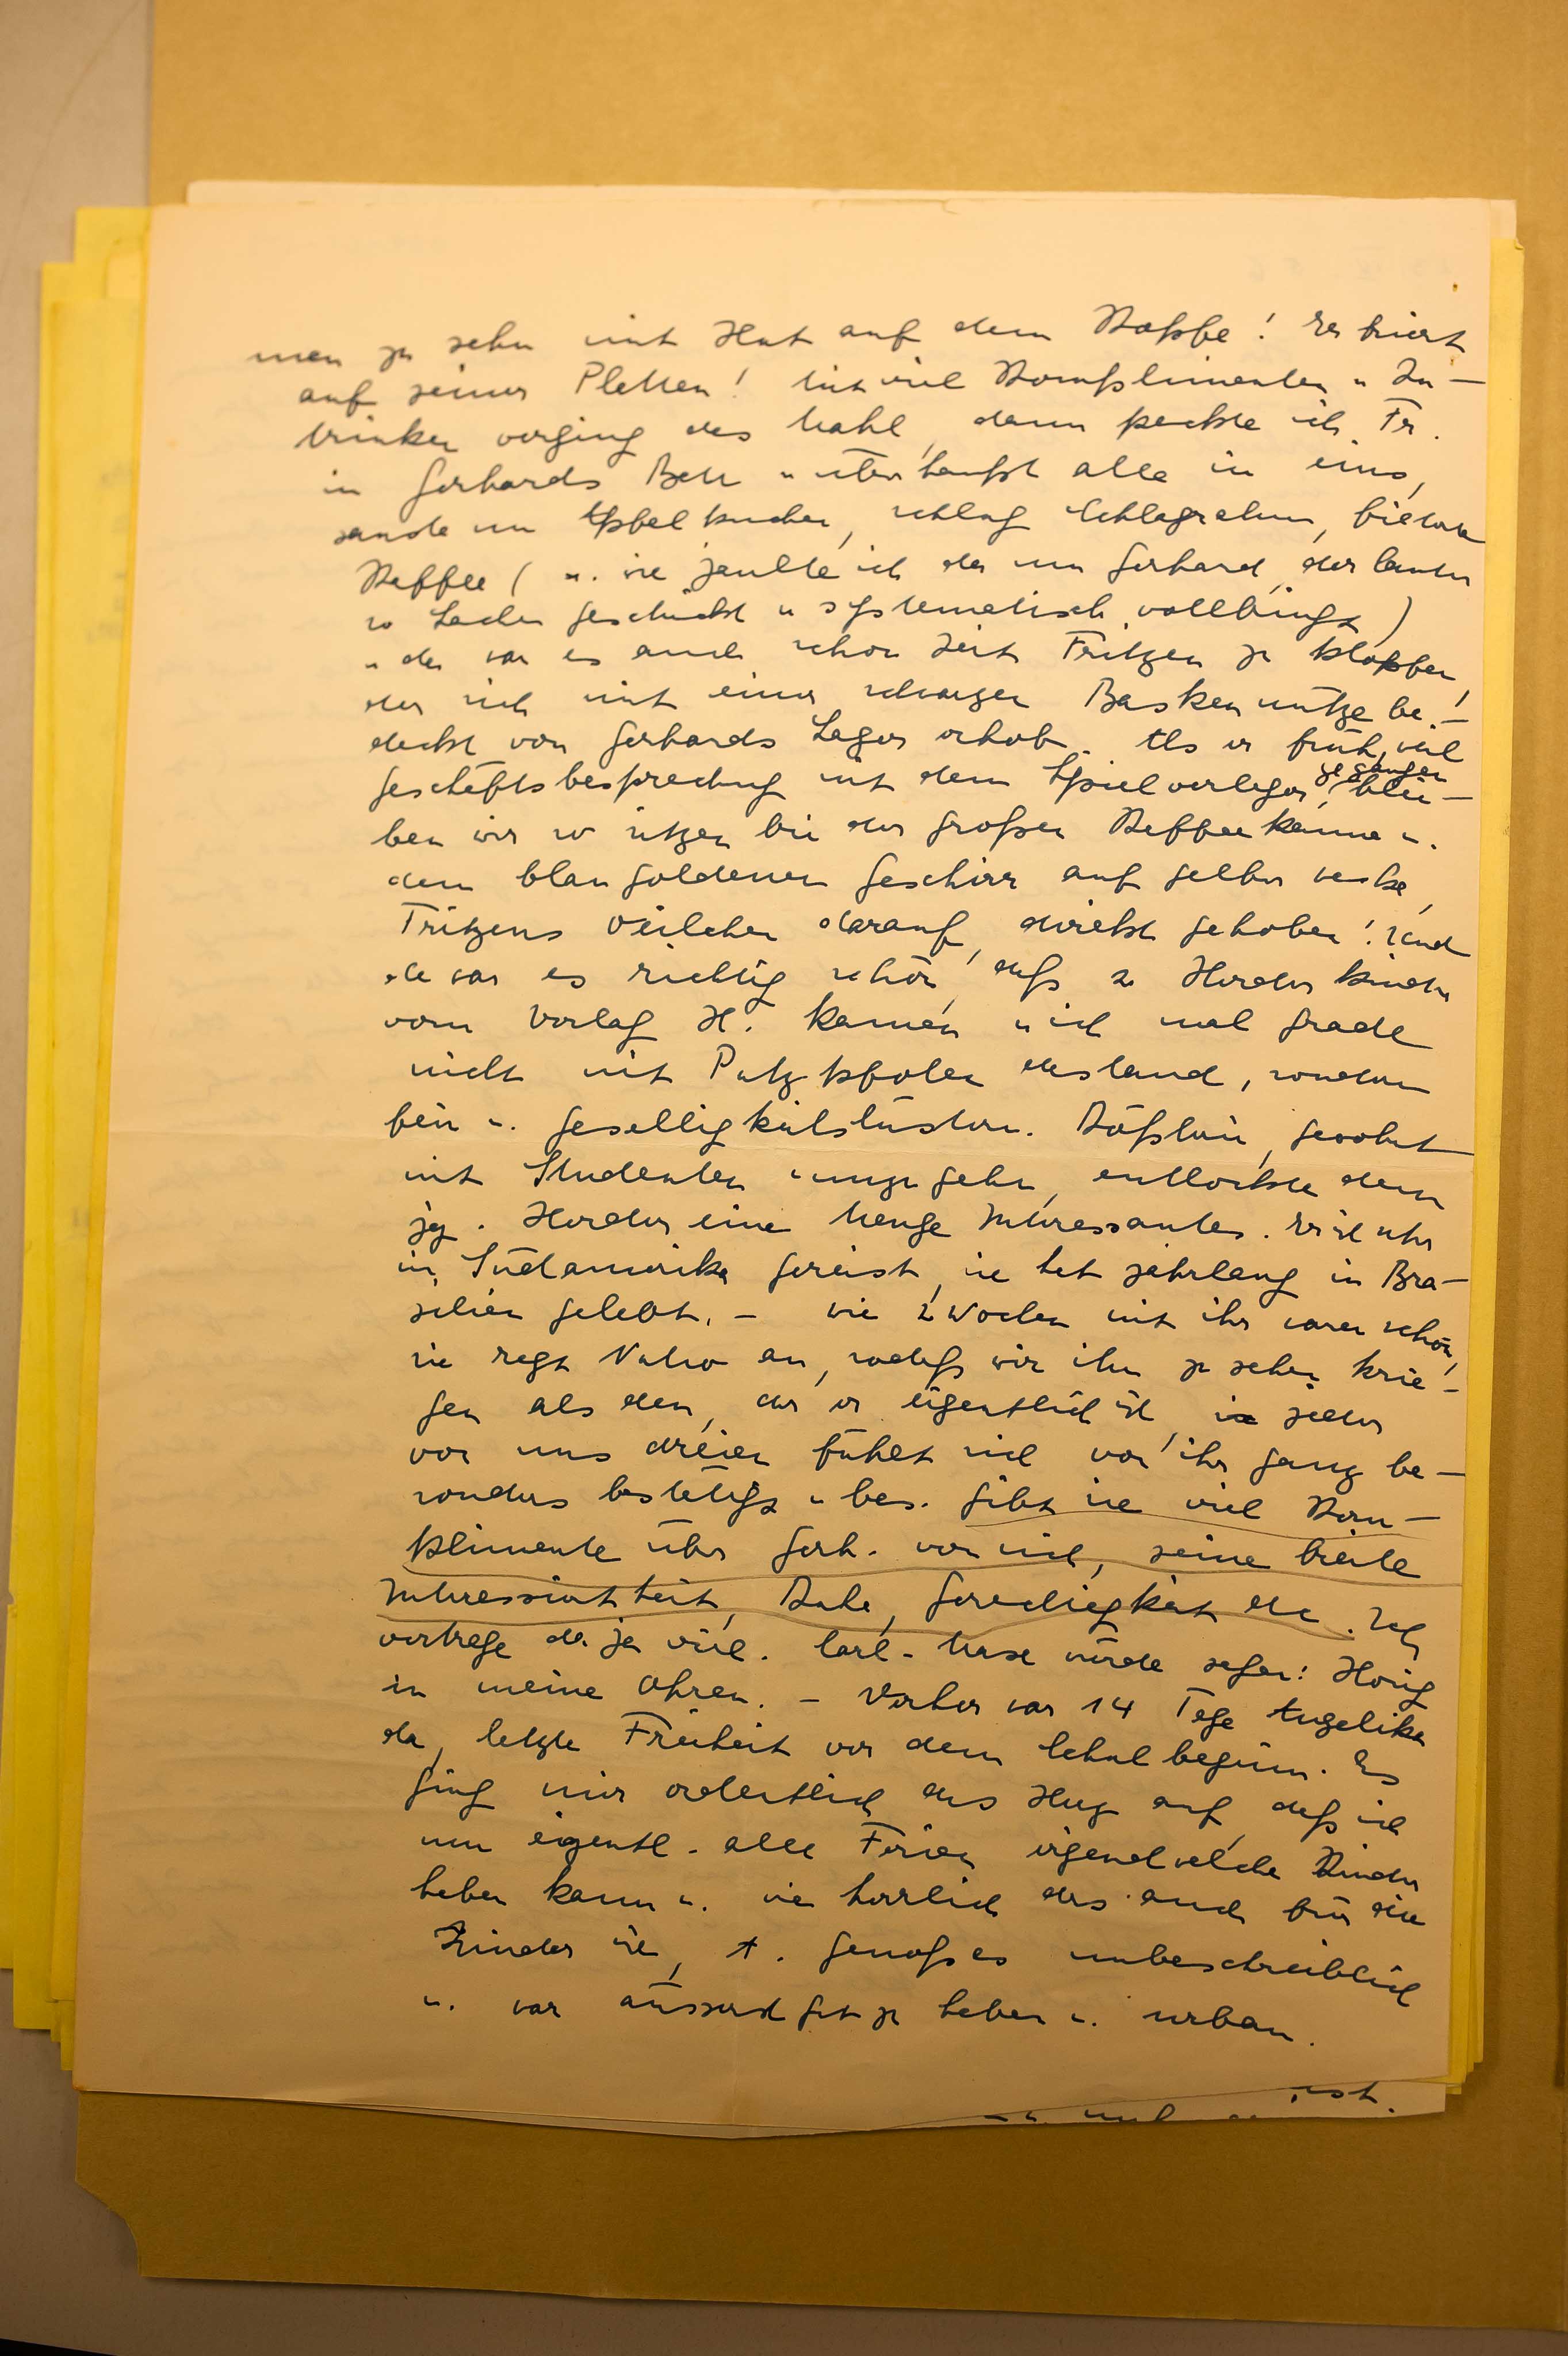 men zu sehn mit Hut auf dem Koppe! Er friert
auf seiner Pletten! Mit viel Komplimenten u Zu-
trinken verging das Mahl, dann packte ich Fr.
in Gerhards Bett u überhaupt alle in eins,
sauste um Apfelkuchen, schlug Schlagrahm, filterte
Kaffee (u. wie jaulte ich da um Gerhard, der lauter
so Sachen geschickt u systematisch vollbringt)
u da war es auch schon Zeit Fritzen zu klopfen,
der sich mit einer schwarzen Baskenmütze be-
deckt von Gerhards Lager erhob. Als er früh, weil
Geschäftsbesprechung mit dem Spielverleger, gegangen, blie-
ben wir so sitzen bei der grossen Kaffeekanne u.
dem blau goldenen Geschirr auf gelber
Fritzens Veilchen darauf, direkt gehoben! Und
da war es richtig schön, daß 2 Herder kinder
vom Verlag H. kamen u ich mal grade
nicht mit Putz dastand, sondern
fein u. geselligkeitslüstern. Rößlein, gewohnt
mit Studenten umzugehn, entlockte dem
jg. Herder eine Menge Interessantes. Er ist sehr
in Südamerika gereist, sie hat jahrlang in Bra-
silien gelebt. - Die 2 Wochen mit ihr waren schön,
sie regt Vatro an, sodaß wir ihn zu sehen krie-
gen als den, der er eigentlich ist, jeder
von uns dreien fühlt sich von ihr ganz be-
sonders bestätigt u bes. gibt sie viel Kom-
plimente über Gerh. von sich, seine breite
Interessiertheit, Ruhe, Gerechtigkeit etc. Ich
vertrage da ja viel. Carl-Urse würde sagen: Honig
in meine Ohren. - Vorher war 14 Tage Angelika
da, letzte Freiheit vor dem Schulbeginn. Es
ging mir ordentlich das Herz auf, daß ich
nun eigentl. alle Ferien irgendwelche Kinder
haben kann u. wie herrlich das auch für die
Kinder ist, A. genoß es unbeschreiblich
u. war äusserst gut zu haben u. urban.
ist.